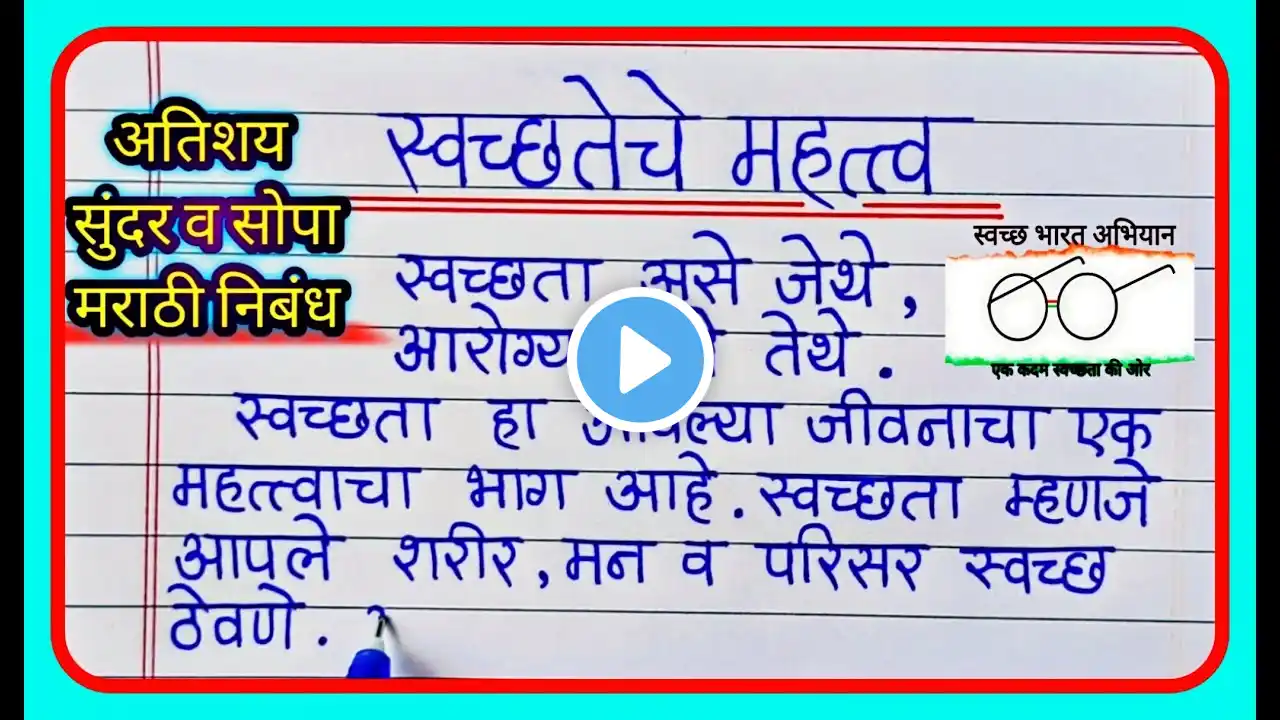 अतिशय
सुंदर व सोपा
मराठी निबंध
स्वच्छतेचे महत्त्व
स्वच्छ भारत अभियान
एक कदम स्वच्छता की ओर
स्वच्छता असे जेथे,
आरोग्य तेथे.
स्वच्छता हा आपल्या जीवनाचा एक
महत्त्वाचा भाग आहे. स्वच्छता म्हणजे
आपले शरीर, मन व परिसर स्वच्छ
ठेवणे.